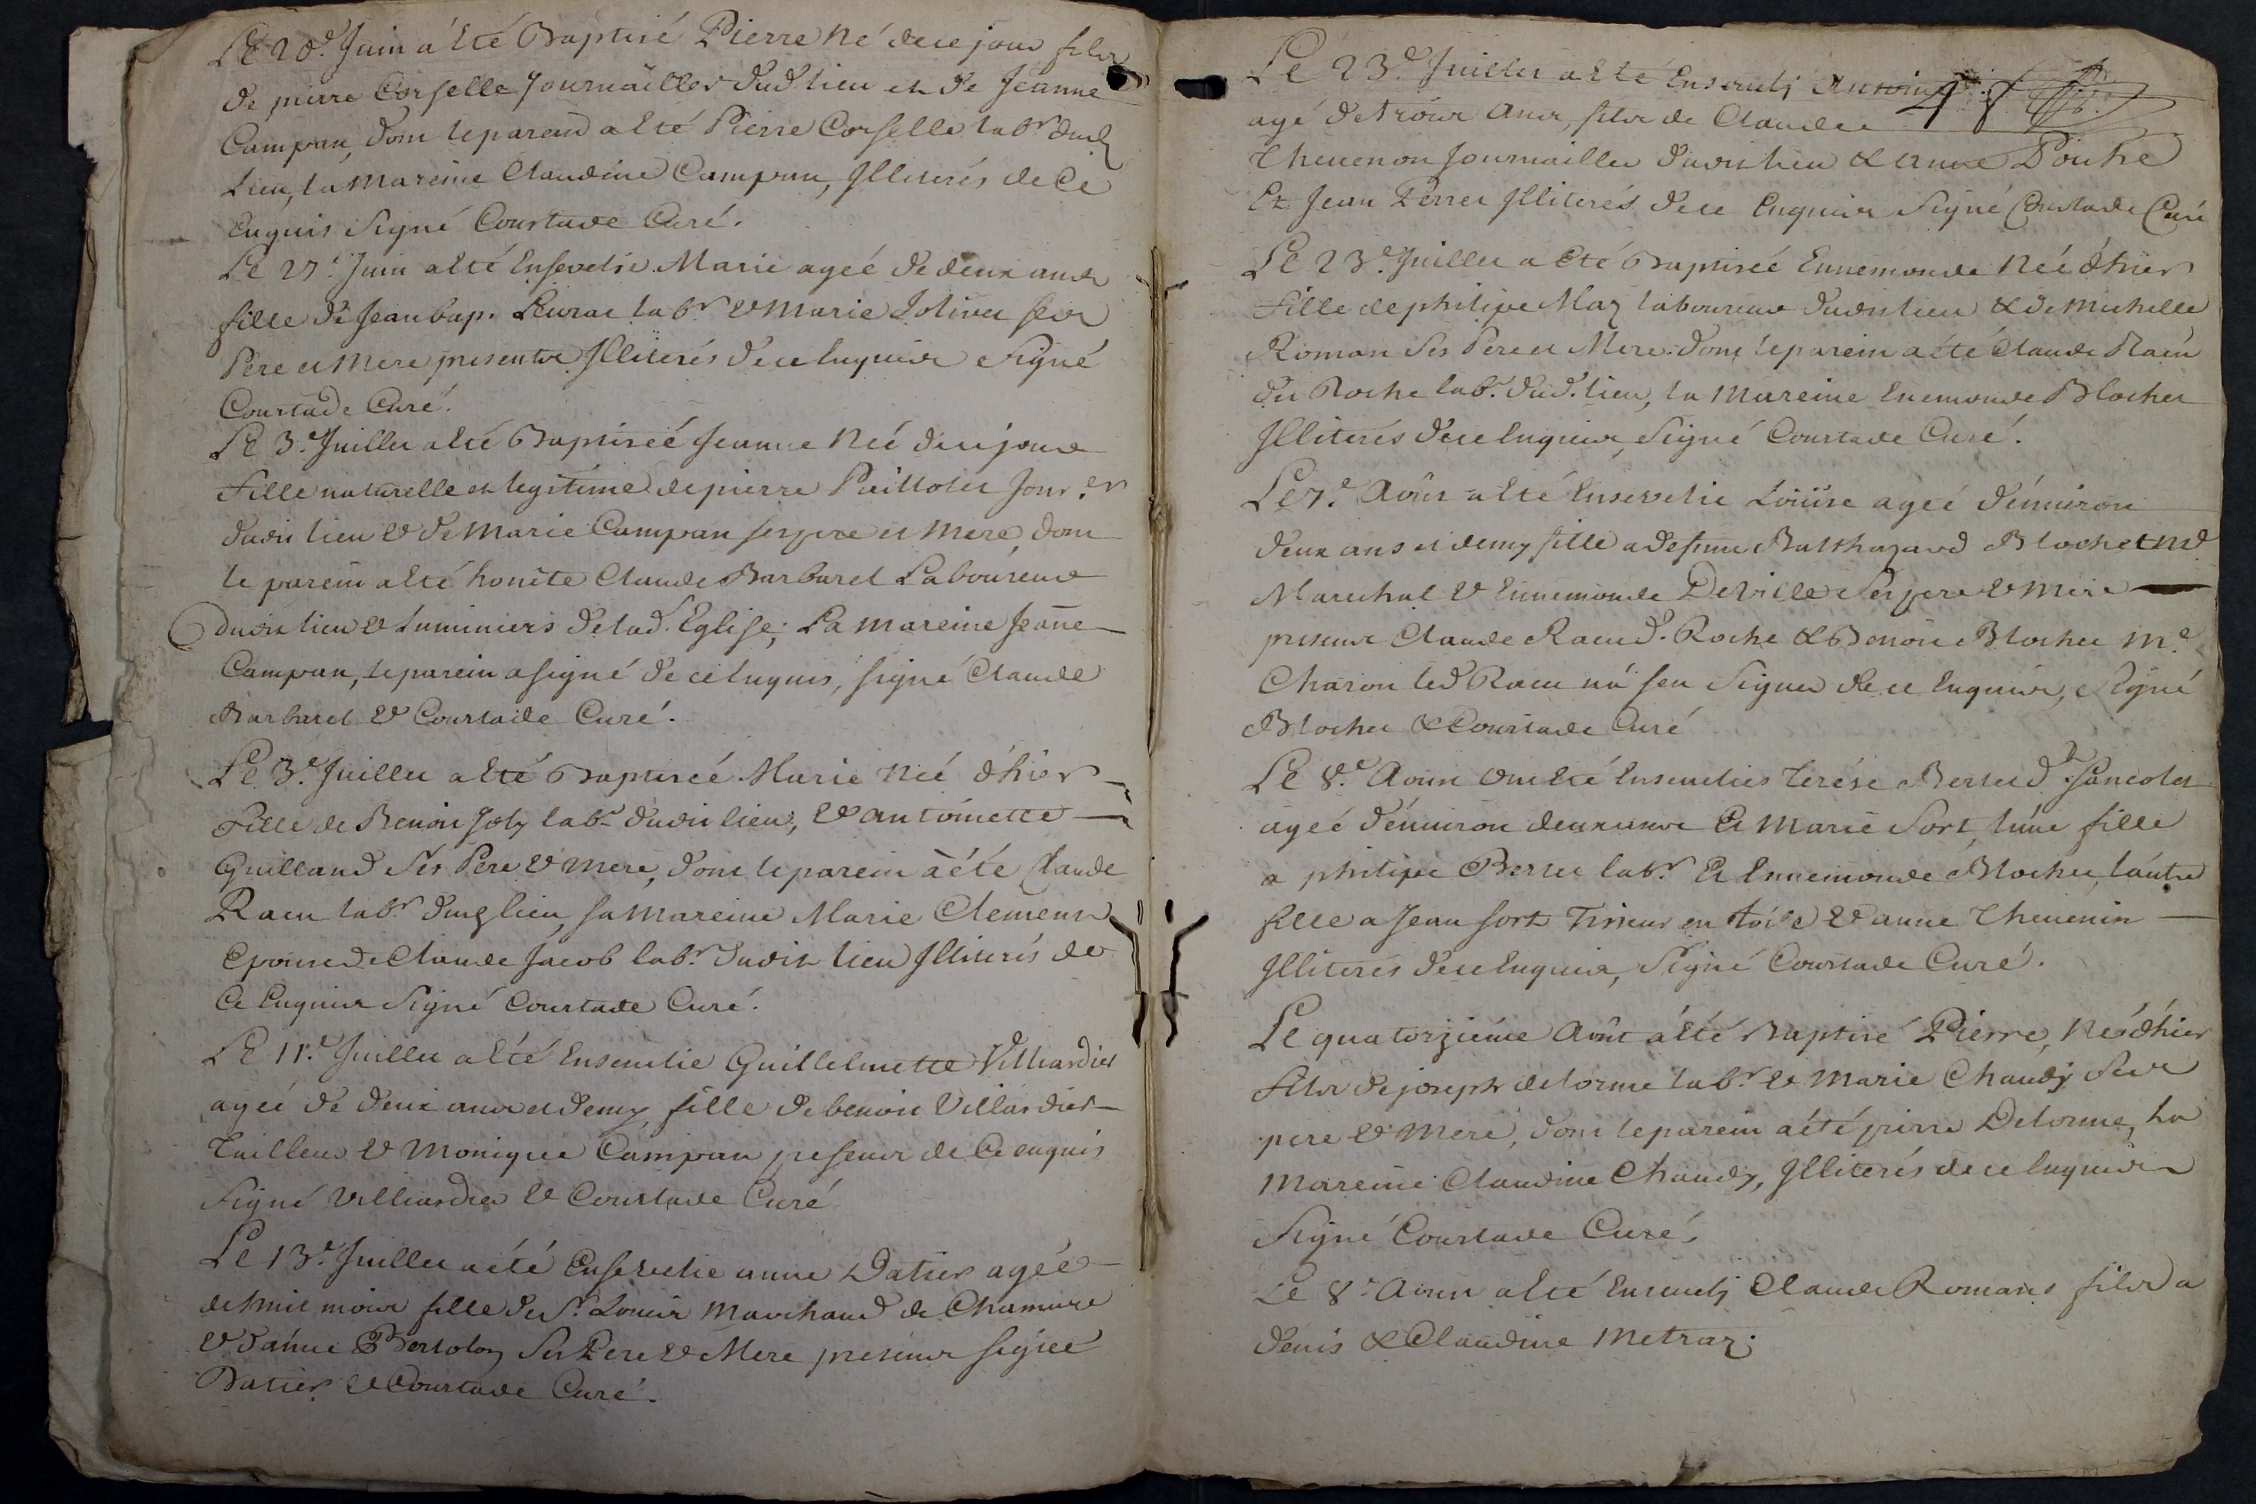 Le 20.e Juin a été Baptisé Pierre né de ce jour fils
de pierre Corselle Journaillier dud lieu et de Jeanne
Campan, dont le parein a été Pierre Corselle labr dud
Lieu, la mareine Claudine Campan, Illiterés de Ce
Enquis Signé Courtade Curé.
Le 27.e Juin a été Ensevelie Marie ageé de deux ans
fille de Jean bap. labr & Marie Jolivet ses
Pere et Mere presents Illiterés de ce Enquis Signé
Courtade Curé.
Le 3.e Juillet a été Baptiseé Jeanne Neé de ce jour
Fille naturelle et legitime de pierre Paillolet Jour.er
dudit lieu & de Marie Campan ses pere et mere, dont
le parein a été honête Claude Barbaret Laboureur
dudit lieu & Luminiers de lad. Eglise; La mareine Jeanne
Campan, le parein a signé de ce Enquis, signé Claude
Barbaret & Courtade Curé.
Le 3.e Juillet a été Baptiseé Marie Neé d'hier
Fille de Benoit Joly labr. dudit lieu, & antoinette
Guilland Ses Pere & mere, dont le parein a été Claude
Racu labr. dud lieu, sa Mareine Marie Clement
Epouse de Claude Jacob labr. dudit lieu Illiterés de
Ce Enquis Signé Courtade Curé.
Le 11.e Juillet a été Ensevelie Guillelmette Villiardier
ageé de deux ans et demy fille de benoit Villardier
Tailleur & Monique Campan presents de Ce enquis
Signé Villiardier & Courtade Curé
Le 13.e Juillet a été Ensevelie anne Datier ageé
de huit mois fille de Sr. Louis Marchand de
& d'anne Bertolon Ses Pere & Mere presents signée
Datier & Courtade Curé.
Le 23.e Juillet a été Ensevely Antoine
agé de trois ans, fils de Claude
Thevenon Journaillier dudit lieu & anne Ponthe
Et Jean Perret Illiterés de ce Enquis Signé Courtade Curé
Le 23.e Juillet a été Baptiseé Ennemonde Neé d'hier
Fille de philipe Maz laboureur dudit lieu & de Michelle
Roman Ses Pere et Mere. dont le parein a été Claude Racu
dit Roche labr. dud. lieu, la Mareine Enemonde Blochet
Illiterés de ce Enquis, Signé Courtade Curé.
Le 7.e Août a été Ensevelie Loüise ageé d'environ
deux ans et demy fille a defunt Balthazard Blochet me
Marechal & Ennemonde Deville Ses pere & Mere
presents Claude Racu dt. Roche & Benoit Blochet me
Charon led Racu n'a seu Signer de ce Enquis, Signé
Blochet & Courtade Curé
Le 8.e Aoust ont été Ensevelies Terése Berlet dte Jancolet
ageé d'environ deux ans Et Marie Sort, l'une fille
a philipe Berlet labr. Et Ennemonde Blochet, l'autre
fille a Jean Sort Tisseur en toile & anne Thevenin
Illiterés de ce Enquis, Signé Courtade Curé.
Le quatorziéme Août a été Baptisé Pierre, Né d'hier
Fils de joseph delorme labr. & Marie Chaudy Ses
pere & Mere, dont le parein a été pierre Delorme, La
Mareine Claudine Chaudy, Illiterés de ce Enquis
Signé Courtade Curé.
Le 8.e Aoust a été Ensevely Claude Romans fils a
denis & Claudine Metraz.